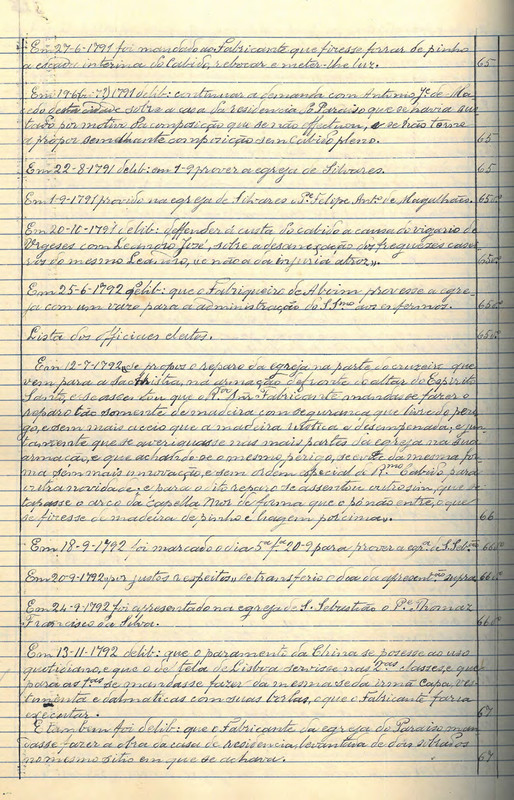 Em 27-6-1791 foi mandado ao Fabricante que fizesse forrar de pinho
a escada interina do Cabido, rebocar e meter-lhe luz. 65
Em 1791 delib: continuar a demanda com Antonio Je. de Ma-
cedo desta cidade sobre a casa da residencia do Paraiso que se havia sus-
tado por motivo da composição que se não effectuou, e se não torne
a propor semelhante composição sem Cabido pleno. 65
Em 22-8-1791 delib: em 1-9 prover a egreja de Silvares. 65
Em 1-9-1791 provido na egreja de Silvares o Pe. Felipe Anto. de Magalhães. 65vo
Em 20-10-1791 delib: defender á custa do cabido a causa do vigario de
Urgeses com Leandro José, sobre a desannexação dos freguezes casei-
ros do mesmo Leandro, "e não a da injuria atroz". 65vo
Em 25-6-1792 delib: que o Fabriqueiro de Alvim provesse a egre-
ja com um vazo para a administração do S.Smo aos enfermos. 65vo
Lista dos officiaes eleitos. 65vo
Em 12-7-1792 "se propos o reparo da egreja na parte do cruzeiro que
vem para a sachristia, na armação defronte do altar do Espirito
Santo, e se assentou que o Snr. Fabricante mandasse fazer o
reparo tão somente de madeira com segurança que livre do peri-
go, e sem mais aceio que a madeira rustica e desempenada, e jun-
tamente que se averiguasse nas mais partes da egreja na sua
armação, e que achando-se o mesmo perigo, se evite da mesma for-
ma sem mais innovação, e sem ordem especial do Rmo Cabido para
outra novidade, e para o dito reparo se assentou outrosim, que se
tapasse o arco da capella mor de forma que o pó não entre, o que
se fizesse de madeira de pinho e linhagem por cima". 66
Em 18-9-1792 foi marcado o dia 5a fa 20-9 para prover a egra. de S. Sebam. 66vo
Em 20-9-1792 "por justos respeitos" se transferio o dia da apresentam supra. 66vo
Em 24-9-1792 foi apresentado na egreja de S. Sebastião o Pe. Thomaz
Francisco da Silva. 66vo
Em 13-11-1792 delib: que o paramento da China se posesse ao uso
quotidiano, e que o de tela de Lisboa servisse nas 2as. classes, e que
para as 1as se mandasse fazer da mesma seda irmã capa, ves-
timenta e dalmaticas com suas borlas, o que o Fabricante faria
executar. 67
E tambem foi delib: que o Fabricante da egreja do Paraiso man-
dasse fazer a obra da casa de residencia, levantada de dois sobrados
no mesmo sitio em que se achava. 67